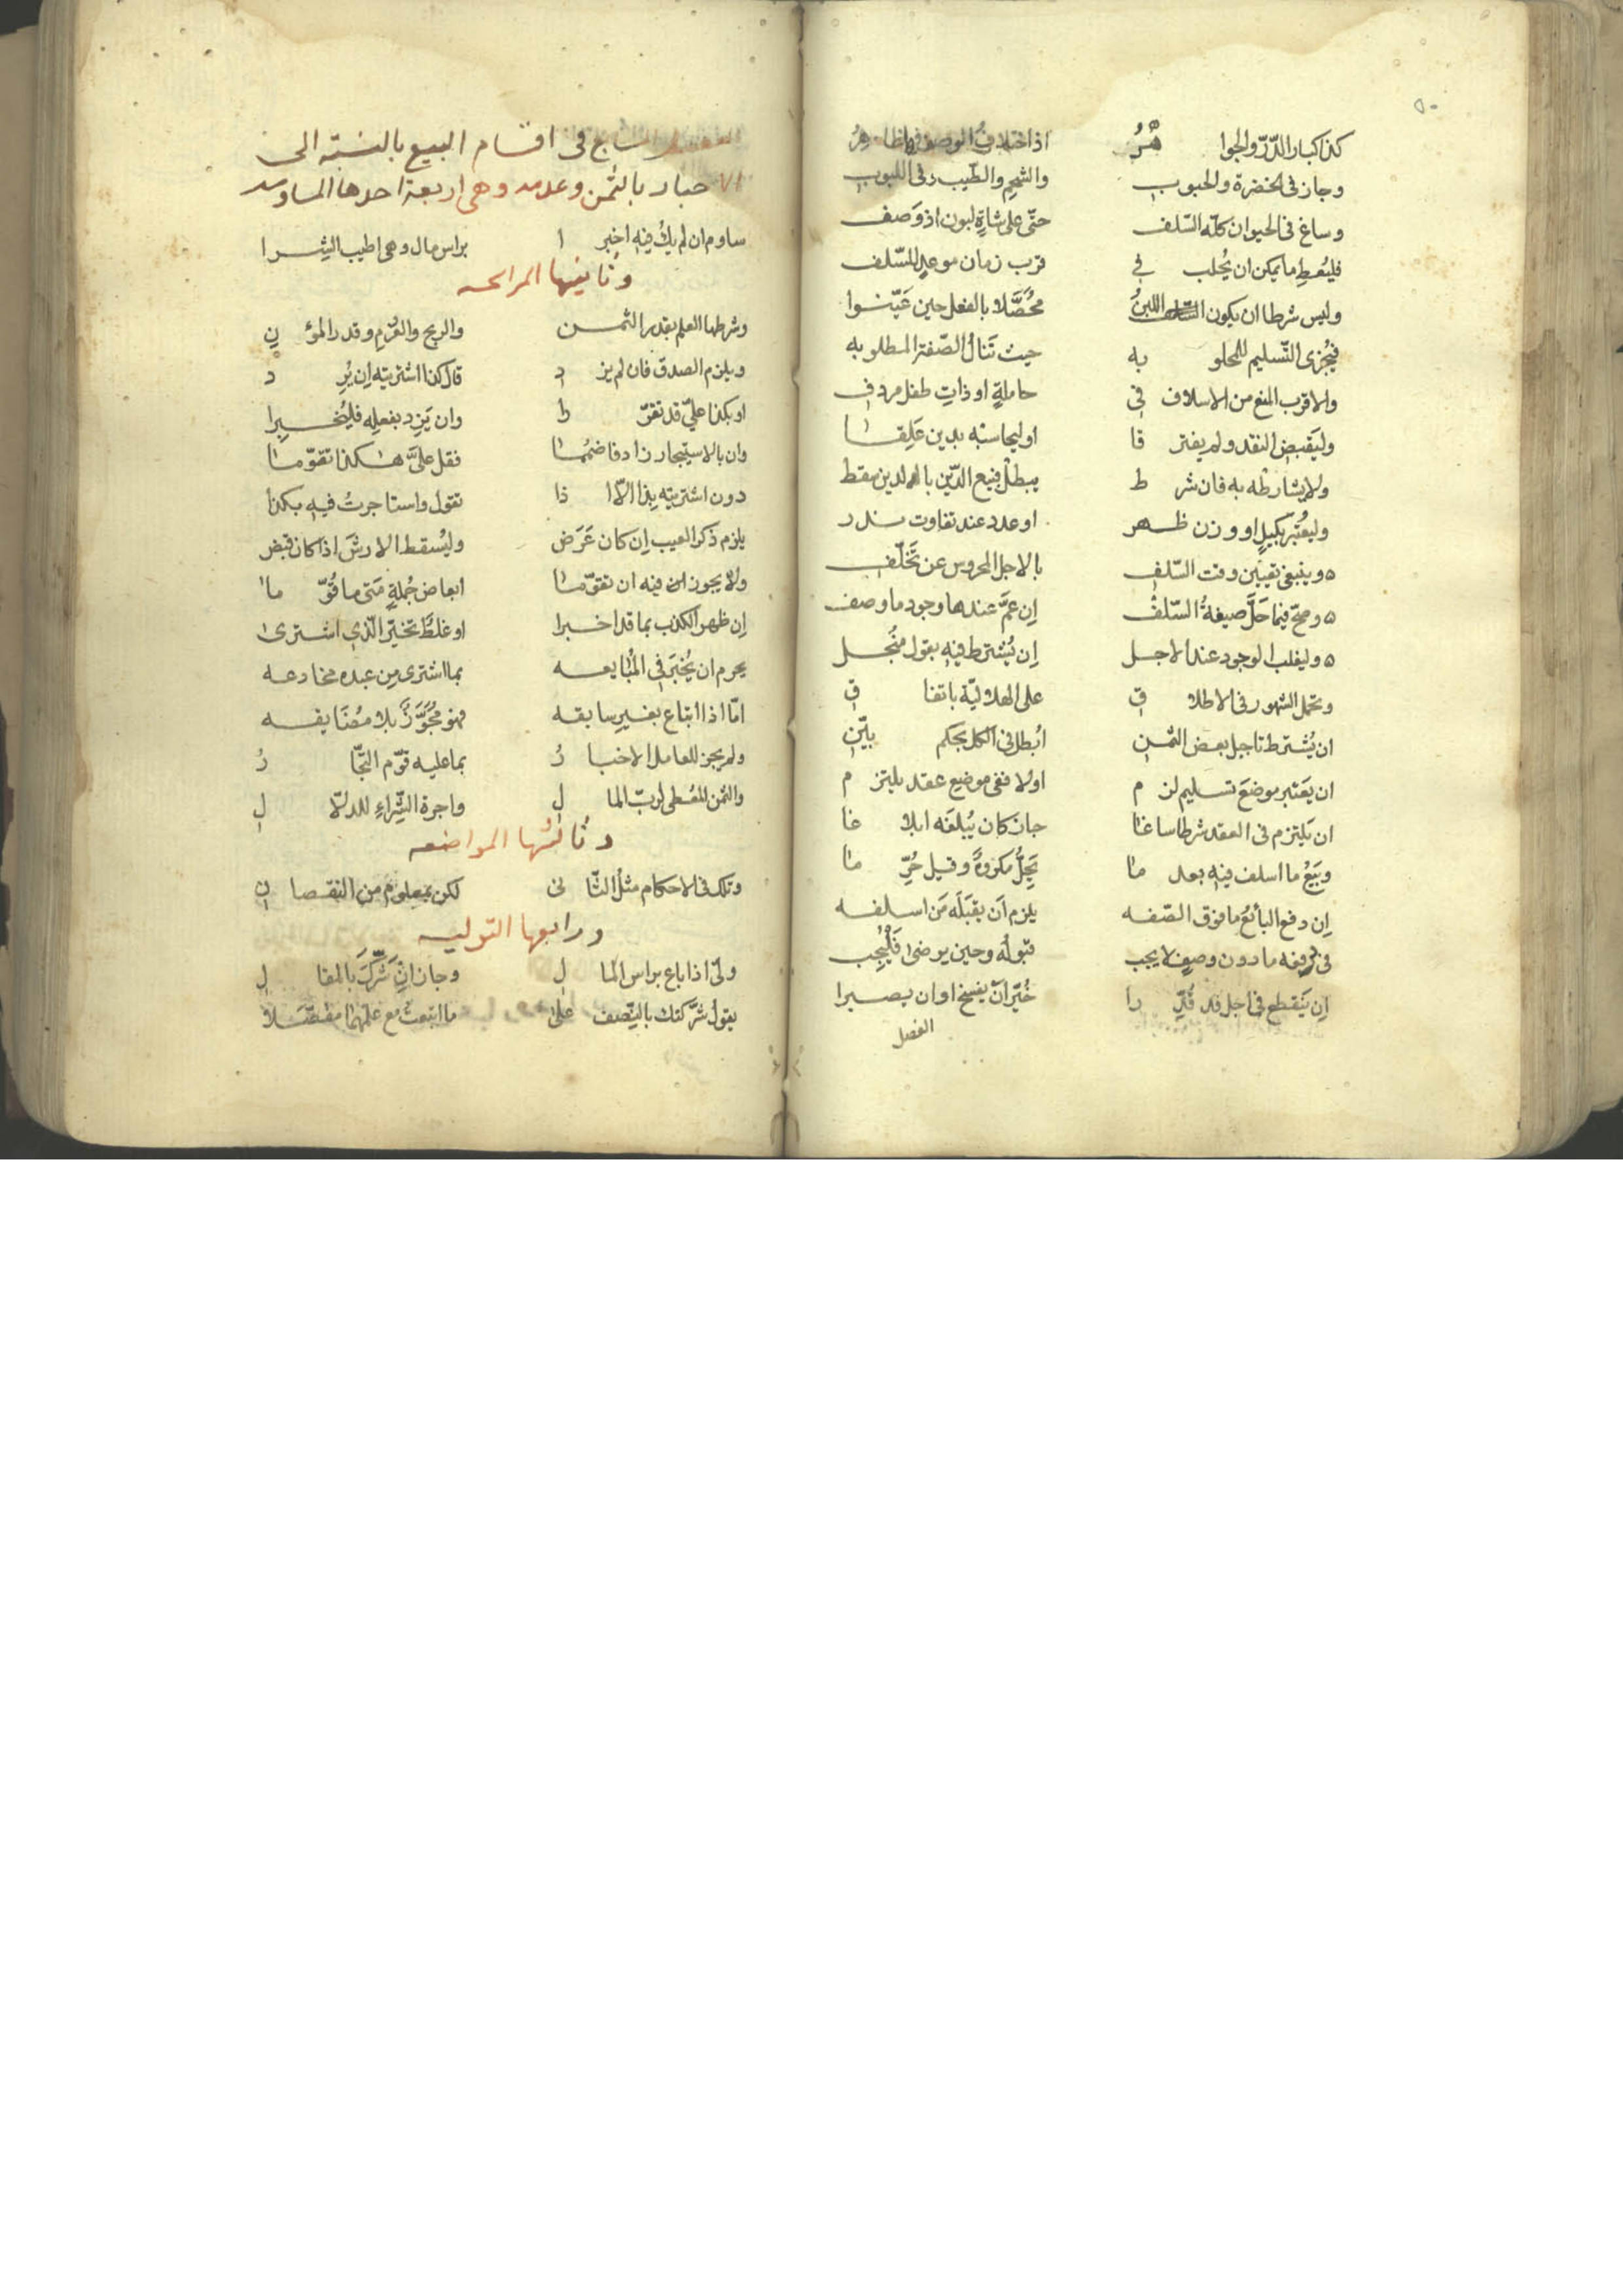 ٥٠
كذا كبار الدّرّ والجوا هرُ اذا اختلاف الوصف فيها ظاهرُ
وجاز في الخضرة والحبوب والشحم والطّيب وفي اللبوب
وساغ في الحيوان كلّه السّلف حتّى على شاةٍ لبون اذ وَصَف
فليُعطِ ما يمكن ان يُحلب في قرب زمان موعدٍ للسّلف
وليس شرطا ان يكون اللبنُ محُصَّلا بالفعل حين عَيّنوا
فيُجزى التّسليم للمحلو به حيث تَنالُ الصّفة المطلوبه
والاقرب المنع من الاسلاف في حاملةٍ او ذاتِ طفل مردف
وليَقبض النقد ولم يفتر قا او ليحاسبْه بدين عَلِقا
ولا يشارطْه به فان شر ط يبطلْ فبيع الدّين بالدين سقط
وليُعتَبر بكيلٍ او وزن ظهر او عدد عند تفاوت ندر
ه وينبغي تعيين وقت السّلف بالاجل المحروس عن تَخَلّف
ه وصحّ فيما حَلَّ صيغةُ السّلف إن عَمَّ عندها وجود ما وصف
ه وليغلب الوجود عند الاجل إن يُشترط فيه بقول منُجل
وتحمل الشهور في الاطلا ق على الهلاليّة باتفا ق
ان يُشترط تاجيل بعض الثمن ابُطل في الكل بحكم بيّن
ان يَعتبر موضعَ تسليم لز م اولا ففي موضع عقد يلتز م
ان يَلتزم في العقد شرطا سا غا جاز كان يُبلغَه ابلا غا
وبَيْعُ ما اسلف فيه بعد ما يَحِلُّ مكروهٌ وقيل حُرِّ ما
إن دفع البائعُ ما فوق الصّفه يلزم اَن يقبَلَه مَن اسلفه
في دفعه ما دون وصفٍ لا يجب قبولُه وحين يرضى فَلْيُجِب
إن يَنقطع في اجل قد قُدِّ را خُيّر اَن يفسخ او ان يصبرا
الفصل
الفصل السابع في اقسام البيع بالنسبة الى
الاخبار بالثمن وعدمه وهي اربعة احدها المساومه
ساوم ان لم يكُ فيه اخبر ا براس مال وهي اطيب الشِرا
وثانيها المرابحه
وشرطها العلم بقدر الثمن والربح والغُرم وقدر المؤ ن
ويلزم الصدق فان لم يز د قال كذا اشتريته اِن يُرِ د
او بكذا عليَّ قد تقوّ ما وان يَزِد بفعلِه فليُخبِرا
وان بالاستيجار زاد فاضمُما فقل علىَّ هكذا تقوّما
دون اشتريته بذا الّا اذا تقول واستاجرتُ فيه بكذا
يلزم ذكر العيب اِن كان عَرَض وليُسقط الارشَ اذا كان قبض
ولا يجوز فيه ان تقوّما ابعاض جُملةٍ مَتى ما قُوّ ما
اِن ظهر الكذب بما قد اخبرا او غلطٌ تخيّر الّذي اشترى
يحرم ان يُخبَرَ في المُبايعه بما اشترى مِن عبده مخادعه
امّا اذا ابتاع بغيرِ سابقه فهو مُجَوَّزٌ بلا مُضَايقه
ولم يجز للعامل الاخبا رُ بما عليه قوّم التجّا رُ
والثمن المُعطى لربّ الما لِ واجرة الشِّراءِ للدلّا لِ
وثالثُها المواضعه
وتلك في الاحكام مثلُ الثّا ني لكن بمعلومٍ من النقصا نِ
ورابعها التوليه
ولّى اذا باع براس الما ل وجاز ان شَرَّكَ بالمقا ل
يقولُ شرَّكتك بالنِّصف على ما ابتعتُ مع علمهما مفصّلا